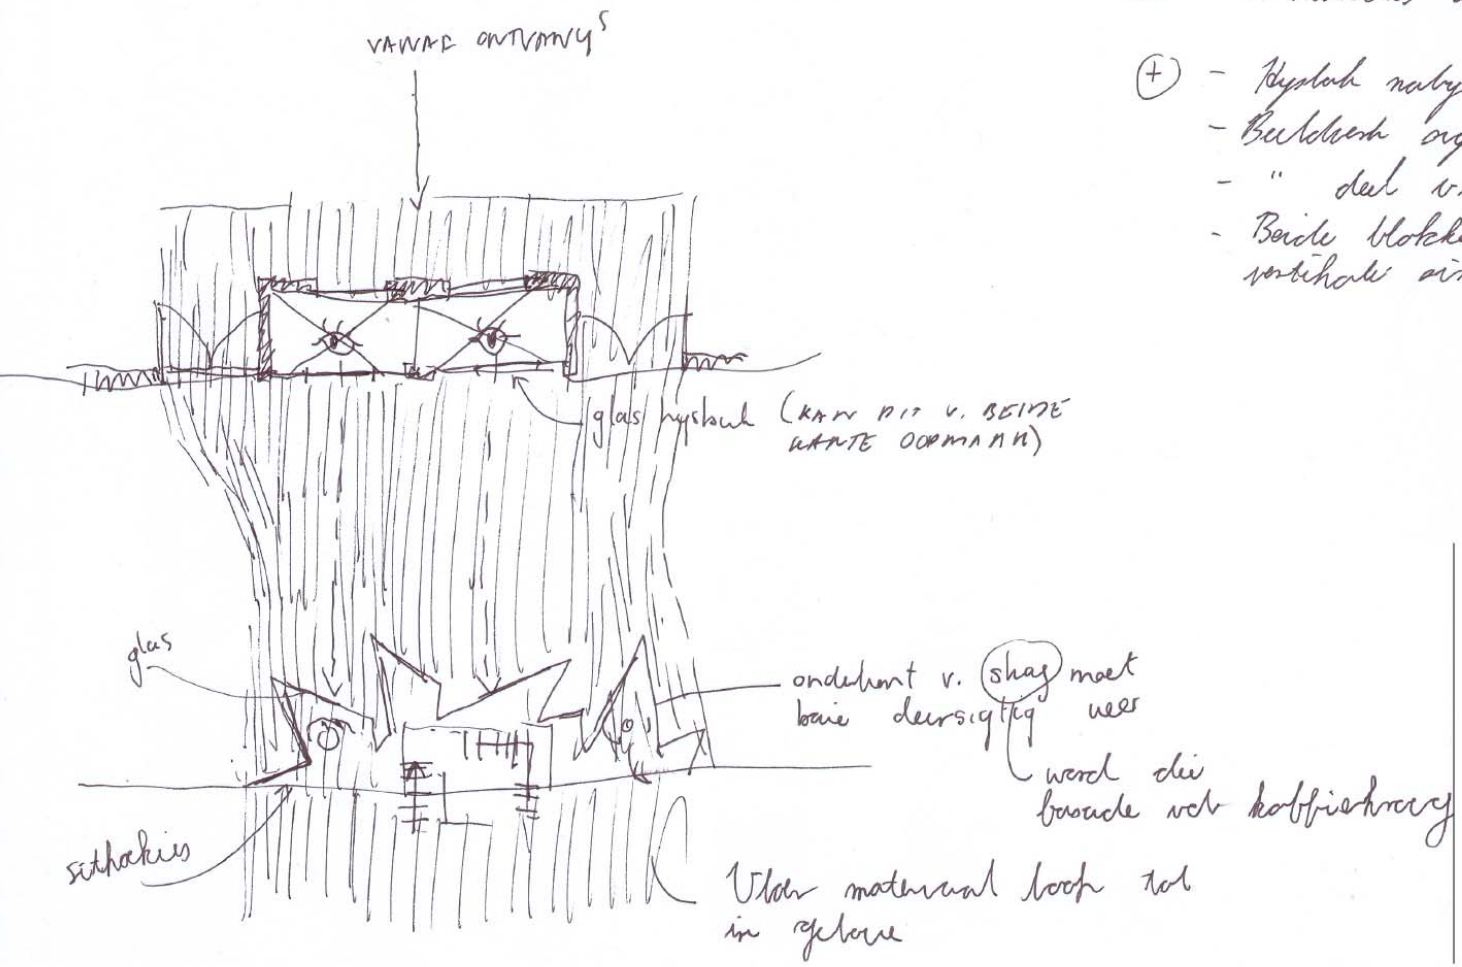 VANAF ONTVANGS
+ - Hysbak naby
-
- " deel v.
- Beide blokke
vertikale
glas hysbak (KAN DIT V. BEIDE
KANTE OOPMAAK)
glas
onderkant v. skag moet
baie deursigtig wees
word die
fasade vd koffiekroeg
sithoekies
Vloer materiaal loop tot
in gebou